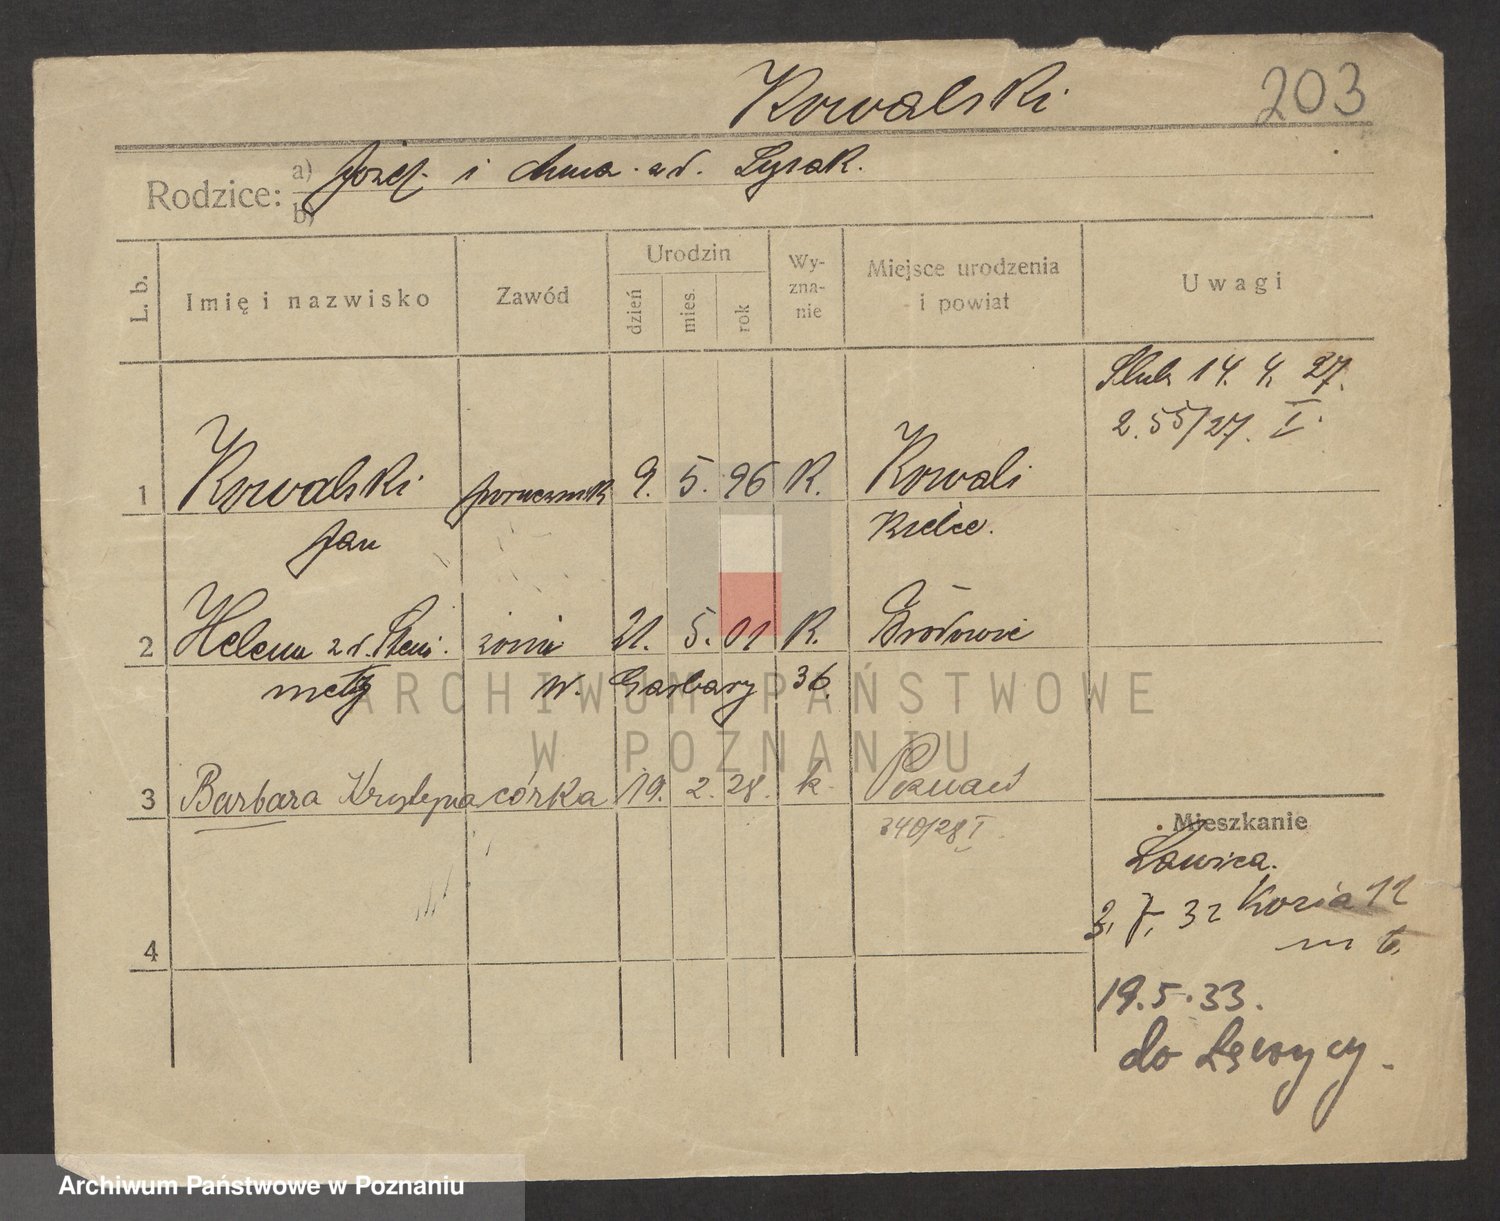 Kowalski
203
Rodzice: a) Józef i Anna z d. Łysak.
b)
L. b. Imię i nazwisko Zawód Urodzin dzień mies. rok Wyznanie Miejsce urodzenia i powiat Uwagi
Ślub 14. 4. 27.
2.55/27. I.
1 Kowalski porucznik 9. 5. 96 R. Kowali
Jan Kielce.
2 Helena z d. Stein- żona 21. 5. 01 R.
metz w. Garbary 36.
3 Barbara Krystyna córka 19. 2. 28. k. Poznań
340/28 I
Mieszkanie
Ławica.
2. 7. 32 Kozia 12
m 6.
4
19.5.33.
do Łęczycy.
ARCHIWUM PAŃSTWOWE
W POZNANIU
Archiwum Państwowe w Poznaniu